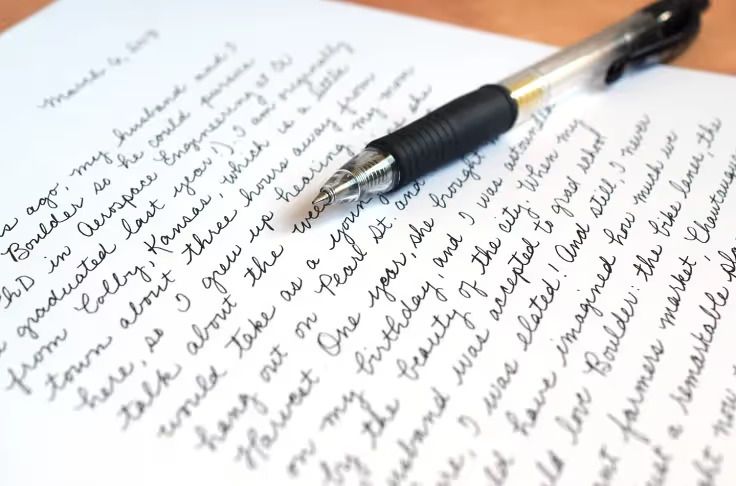 March 6, 2013
s ago, my husband and I
Boulder so he could pursue
PhD in Aerospace Engineering at CU
graduated last year!). I am originally
from Colby, Kansas, which is a little
town about three hours away from
here, so I grew up hearing my mom
talk about the
would take as a young
hang out on Pearl St. and
Harvest One year, she brought
on my birthday, and I was astounded
by the beauty of the city. When my
husband was accepted to grad school
I was elated! And still, I never
have imagined how much we
love Boulder: the bike lanes, the
farmers market, Chautauqua
just a remarkable
now